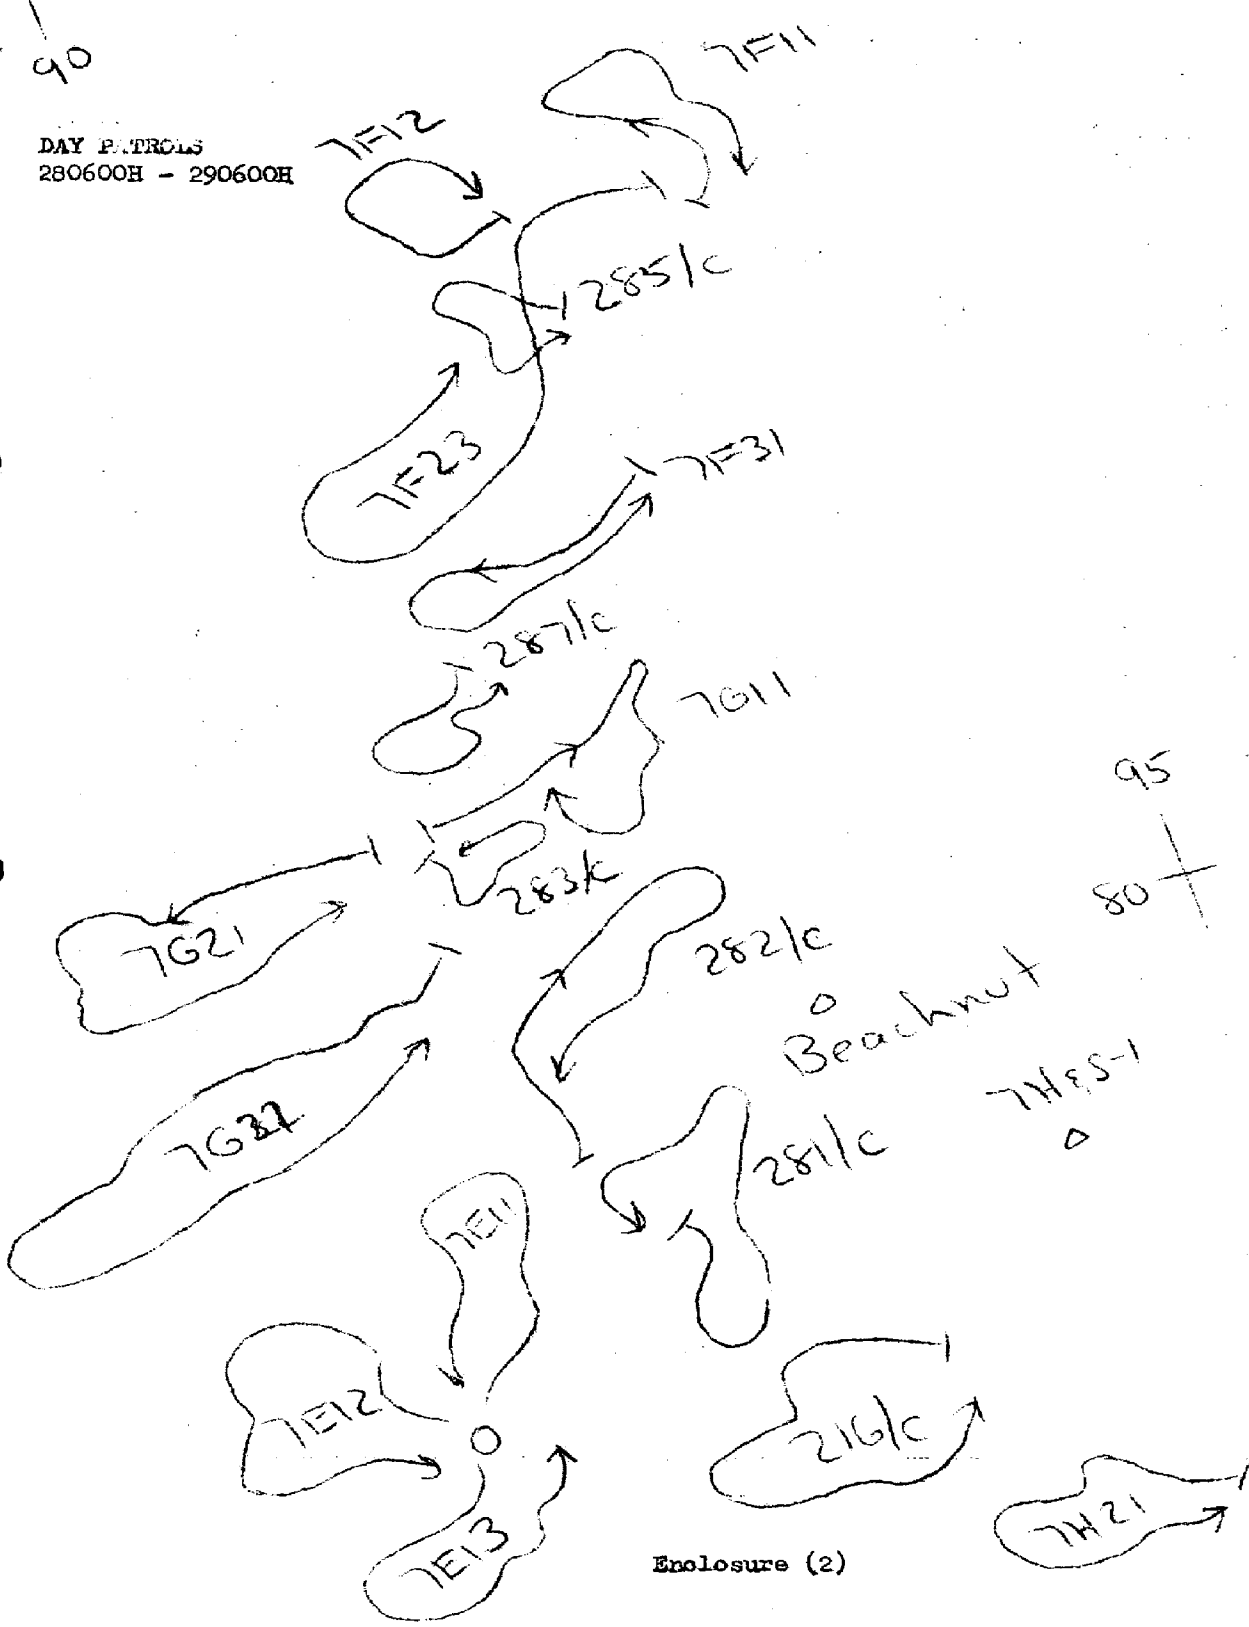 90
7F11
7F12
DAY PATROLS
280600H - 290600H
285/c
7F23
7F31
287/c
7G11
95
80
283/c
7G21
282/c
Beachnut
7H&S-1
7G37
281/c
7E11
7E12
216/c
7H21
7E13
Enclosure (2)